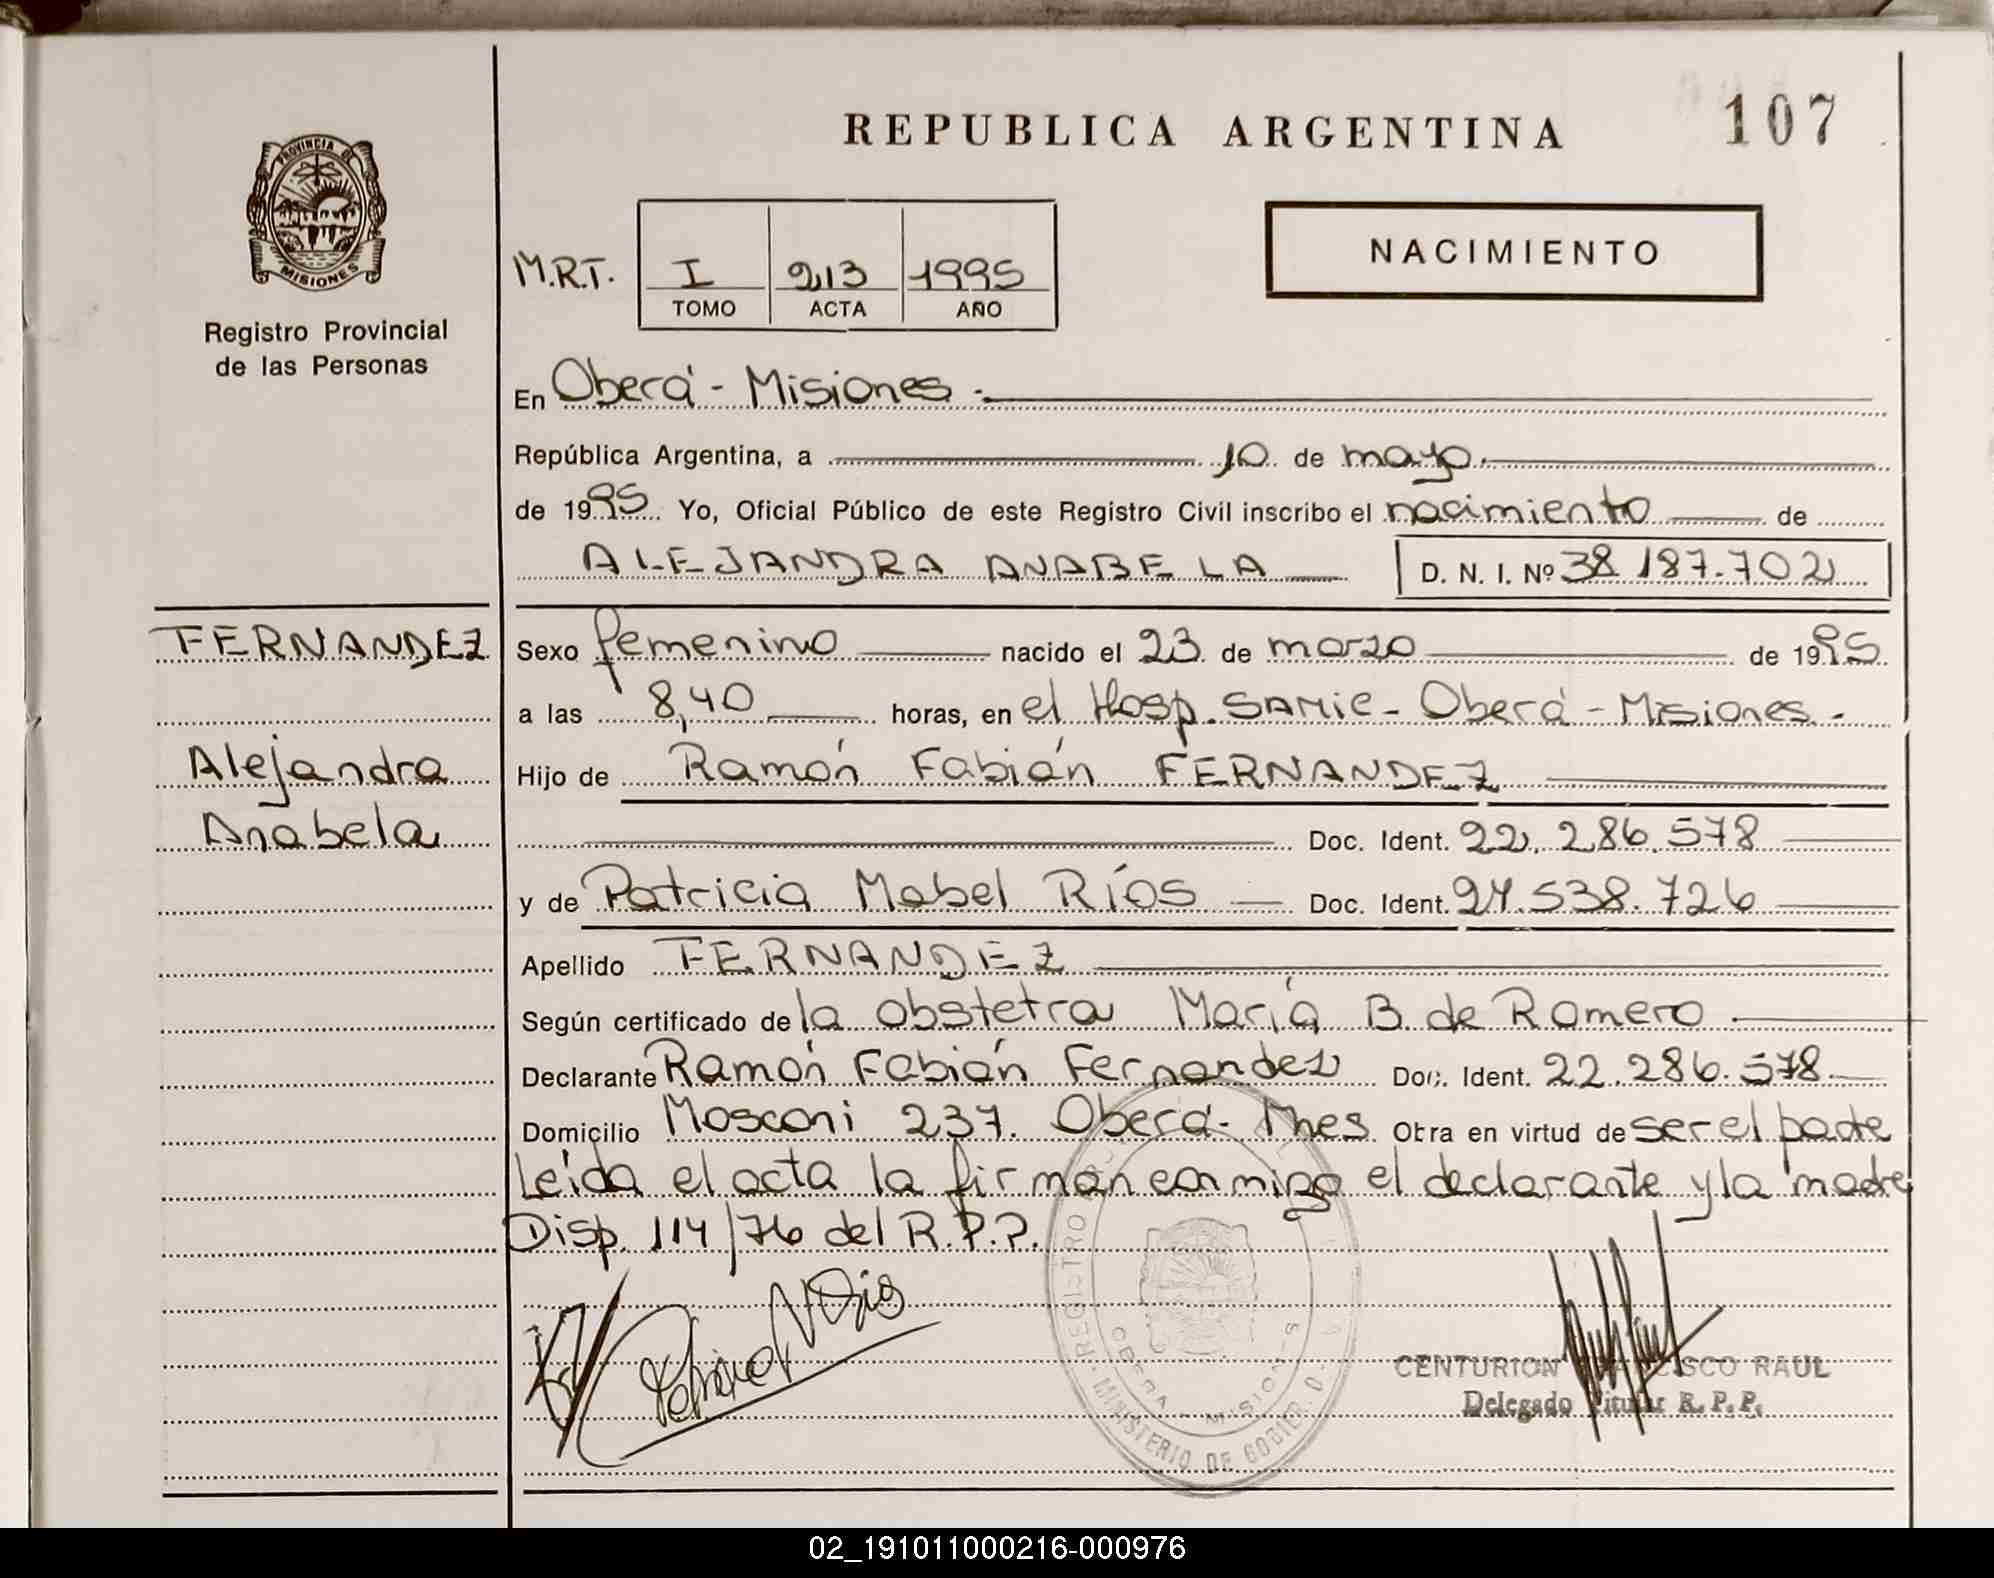 REPUBLICA ARGENTINA
107
PROVINCIA DE
MISIONES
Registro Provincial
de las Personas
M.R.T.
I
213
1995
TOMO
ACTA
AÑO
NACIMIENTO
En Oberá - Misiones -
República Argentina, a 10 de mayo.
de 1995 Yo, Oficial Público de este Registro Civil inscribo el nacimiento de
ALEJANDRA ANABELA D. N. I. Nº 38.187.702
FERNANDEZ
Alejandra
Anabela
Sexo femenino nacido el 23 de marzo de 1995
a las 8,40 horas, en el Hosp. SAMIC - Oberá - Misiones -
Hijo de Ramón Fabián FERNANDEZ
Doc. Ident. 22.286.578
y de Patricia Mabel Ríos Doc. Ident. 24.538.726
Apellido FERNANDEZ
Según certificado de la obstetra María B. de Romero
Declarante Ramón Fabián Fernandez Doc. Ident. 22.286.578
Domicilio Mosconi 237. Oberá - Mnes Obra en virtud de ser el padre
Leída el acta la firman conmigo el declarante y la madre
Disp. 114/76 del R.P.P.
REGISTRO
OBERA - MISIONES
MINISTERIO DE GOBIER
CENTURION FRANCISCO RAUL
Delegado Titular R. P. P.
02_191011000216-000976